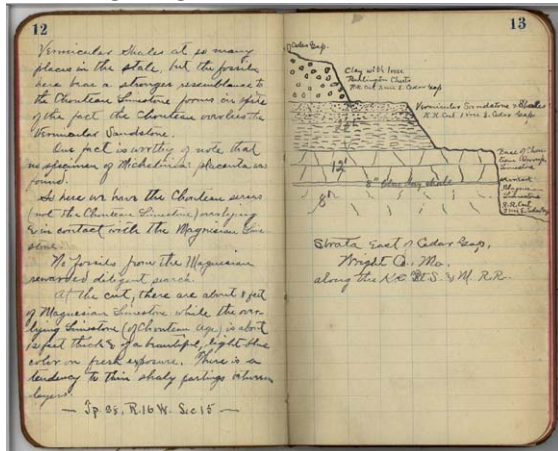 12
Vermicular Shales at so many
places in the state, but the fossils
here bear a stronger resemblance to
the Chouteau Limestone forms in spite
of the fact the Chouteau overlies the
Vermicular Sandstone.
One fact is worthy of note that
no specimen of Michelinia placenta was
found.
So here we have the Chouteau series
(not the Chouteau Limestone) overlying
& in contact with the Magnesian Lime
stone.
No fossils from the Magnesian
rewarded diligent search.
At the cut, there are about 8 feet
of Magnesian Limestone while the over-
lying Limestone (of Chouteau Age) is about
12 feet thick & of a beautiful, light blue
color on fresh exposure. There is a
tendency to thin shaly partings between
layers.
— Tp 28. R.16 W. Sec 15 —
13
Cedar Gap.
Clay with loose
Burlington Cherts
R.R. Cut 3 mi E. Cedar Gap
Vermicular Sandstone & Shales
R.R. Cut 3 mi E. Cedar Gap
East of Chou-
teau
Limestone
12'
8" blue clay shale
8'
Magnesian
Limestone
R.R. Cut
3 mi E. Cedar Gap
Strata East of Cedar Gap,
Wright Co., Mo.
along the K.C. Ft. S. & M. R.R.